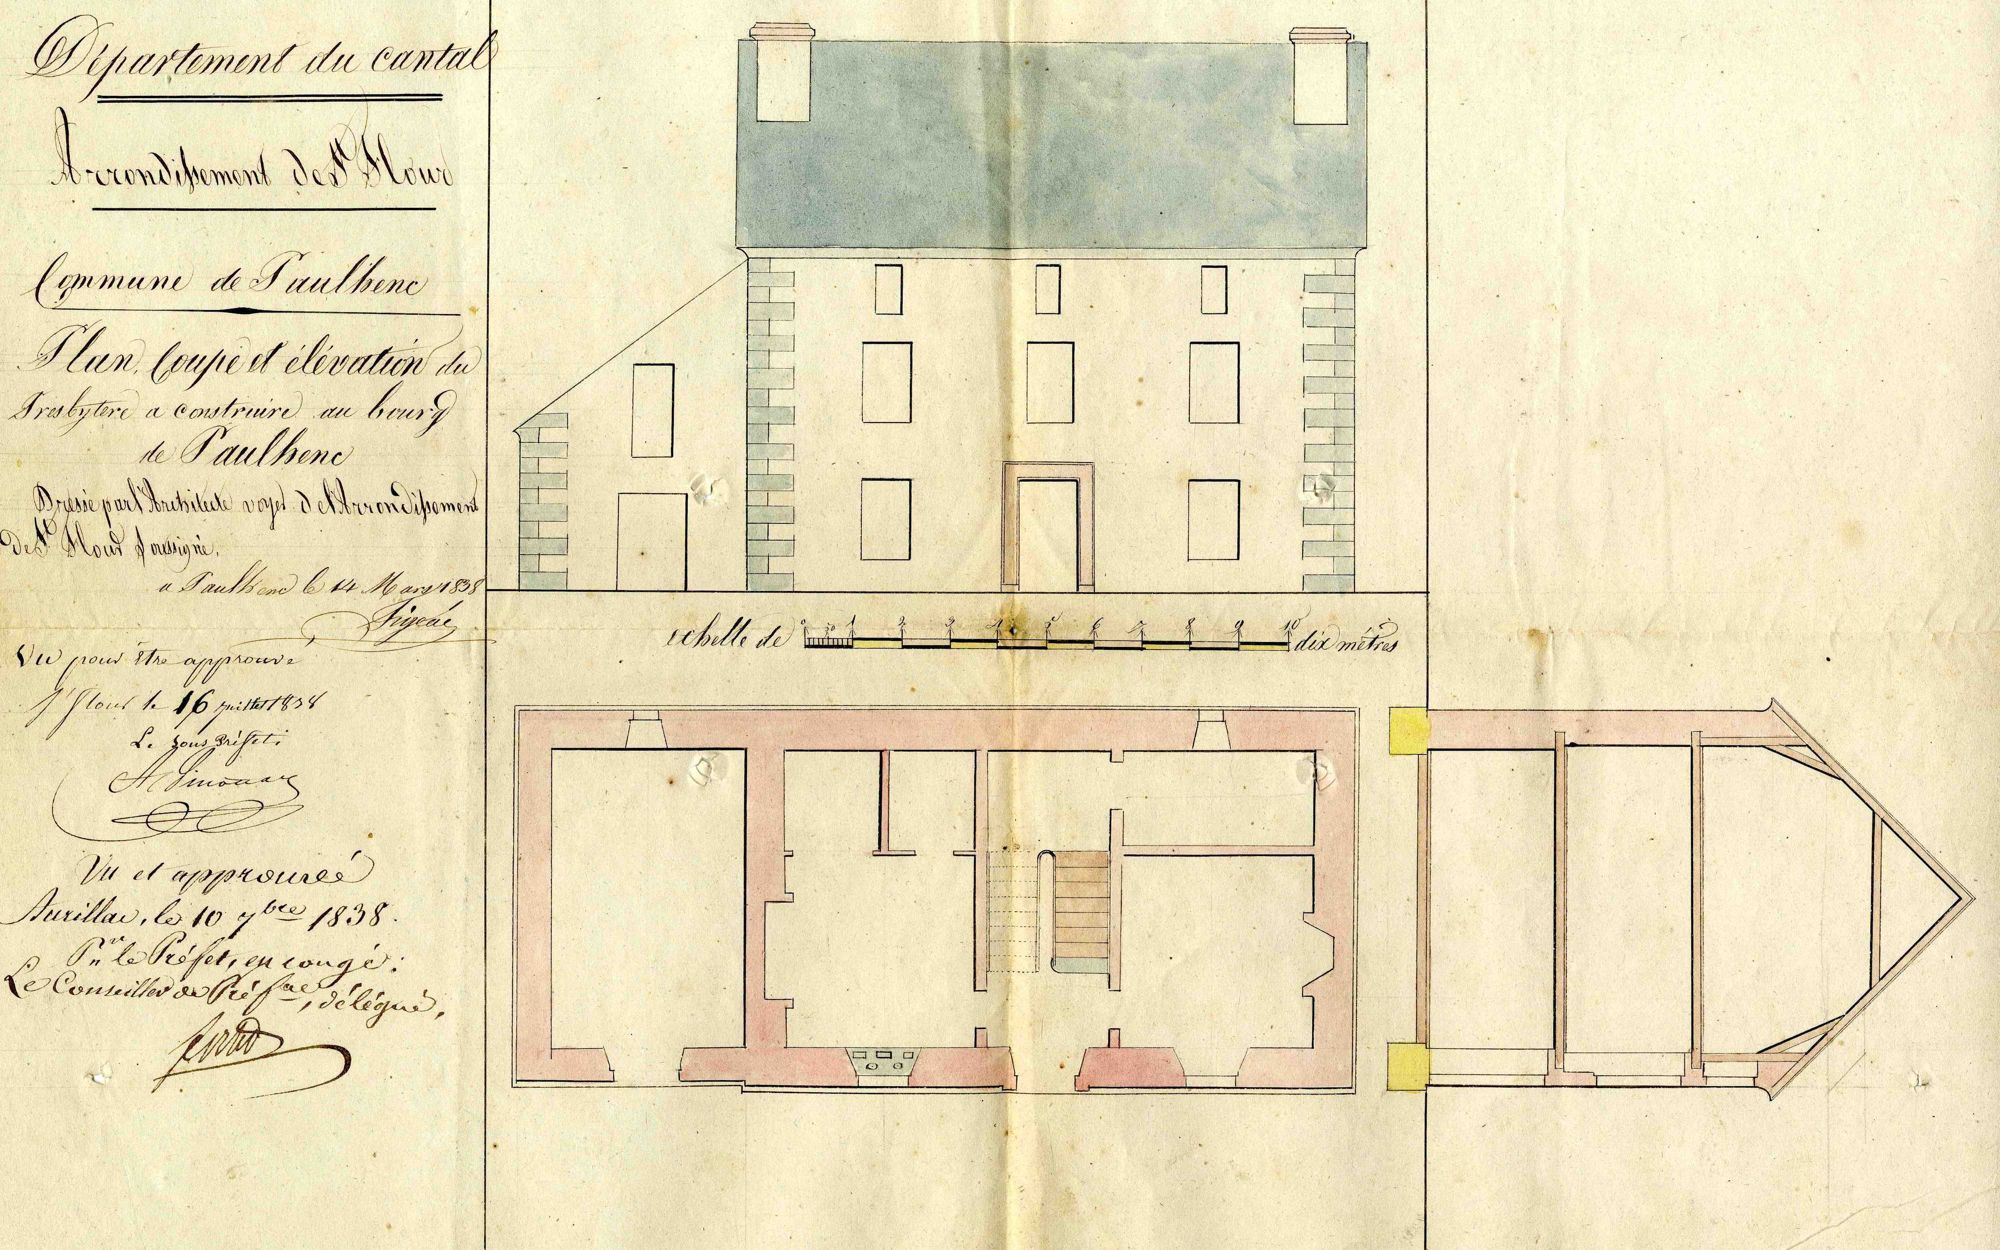 Département du cantal
Arrondissement de St Flour
Commune de Paulhenc
Plan, Coupe et élévation du
Presbytere a construire au bourg
de Paulhenc
Dressé par l'Architecte voyer de l'Arrondissement
de St Flour soussigné,
a Paulhenc le 14 Mars 1838
Figeac
Vu pour être approuvé
St flour le 16 juillet 1838
Le sous Préfet:
Vu et approuvé
Aurillac, le 10 7bre 1838.
Pr le Préfet, en congé:
Le Conseiller de Préfre, délégué,
echelle de 0 1 2 3 4 5 6 7 8 9 10 dix mètres